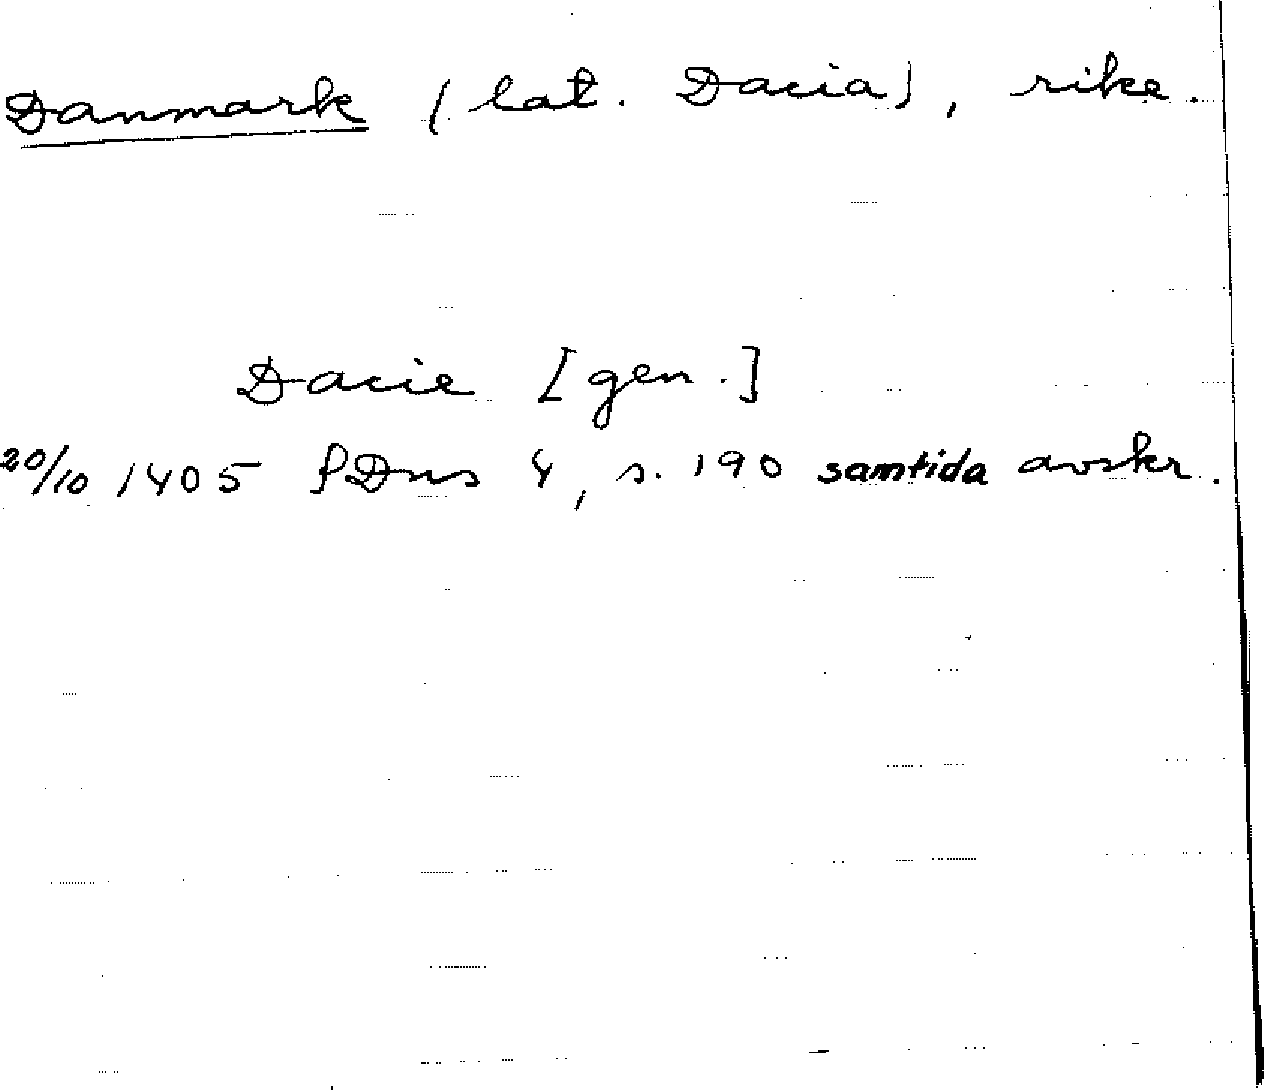 Danmark (lat. Dacia), rike.
Dacie [gen.]
20/10 1405 SDns 4, s. 190 samtida avskr.